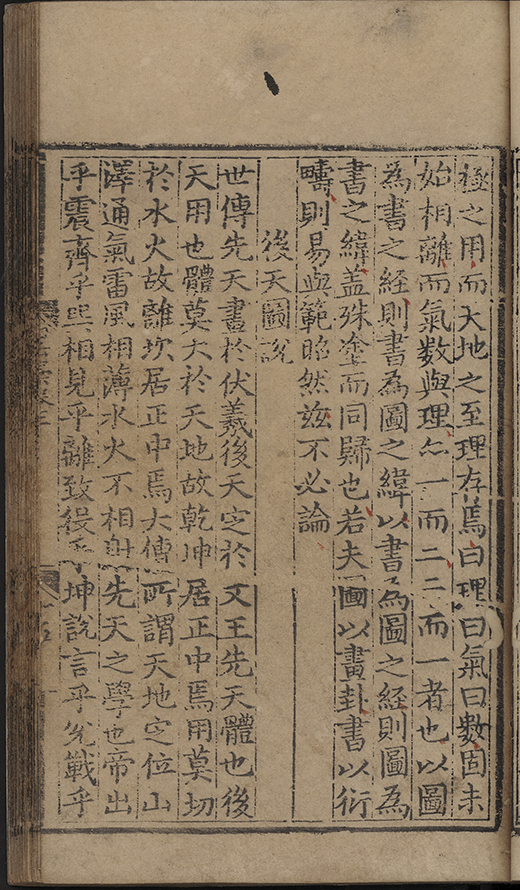 後之用而天地之至理存焉曰理曰氣曰數固未
始相離而氣数與理亦一而二二而一者也以圖
為書之經則書為圖之緯以書為圖之經則圖為
書之緯盖殊塗而同歸也若夫圖以畫卦書以衍
疇則易與範昭然玆不必論
後天圖說
世傳先天畫於伏羲後天定於文王先天體也後
天用也體莫大於天地故乾坤居正中焉用莫切
於水火故離坎居正中焉大傳所謂天地定位山
澤通氣雷風相薄水火不相射先天之學也帝出
乎震齊乎巽相見乎離致役乎坤說言乎兌戰乎